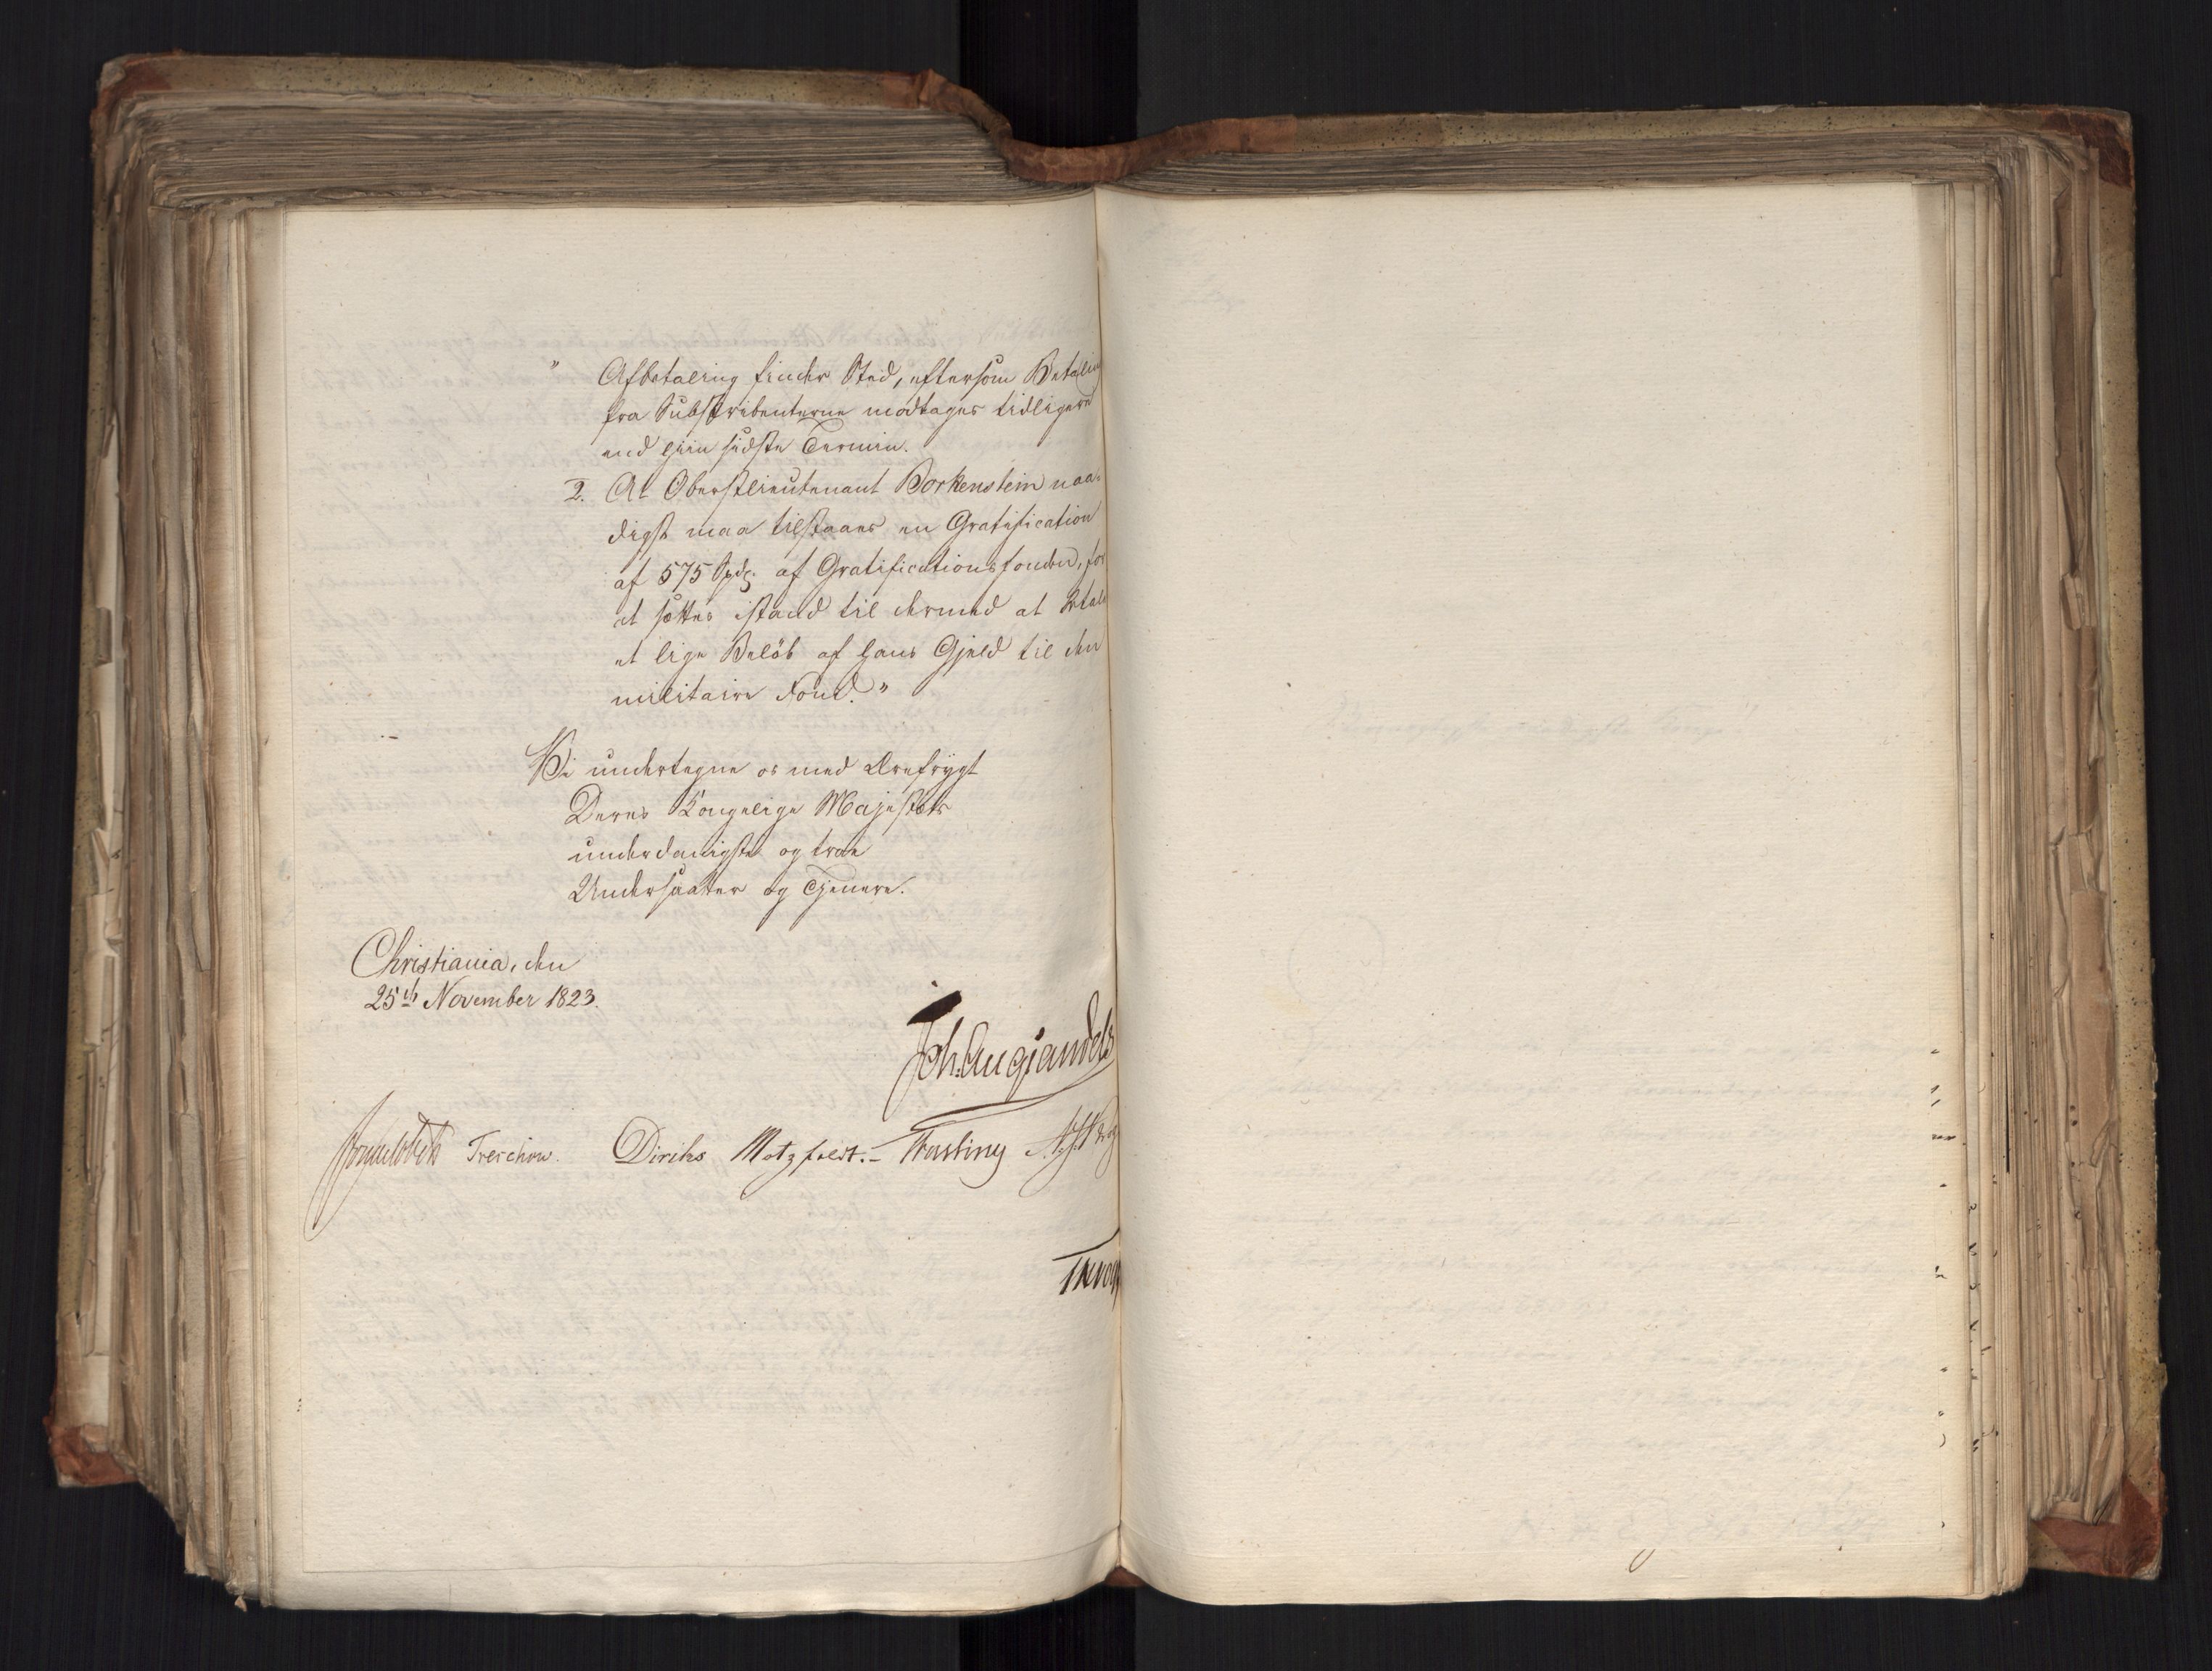 " Afbetaling finder Sted, eftersom Betalin
fra Subskribenterne modtages tidligere
end hiin sidste Termin.
2. At Oberstlieutenant Borkenstein naa-
digst maa tilstaaes en Gratification
af 575 Spd. af Gratificationsfonden, for
at sættes istand til dermed at betale
et lige Beløb af hans Gjeld til den
militaire Fond."
Vi undertegne os med Ærefrygt
Deres Kongelige Majestæts
underdanigste og troe
Undersaatter og Tjenere.
Christiania, den
25de November 1823.
Joh. Aug Sandels
Sommerhielm Treschow. Diriks Motzfeldt. Fasting